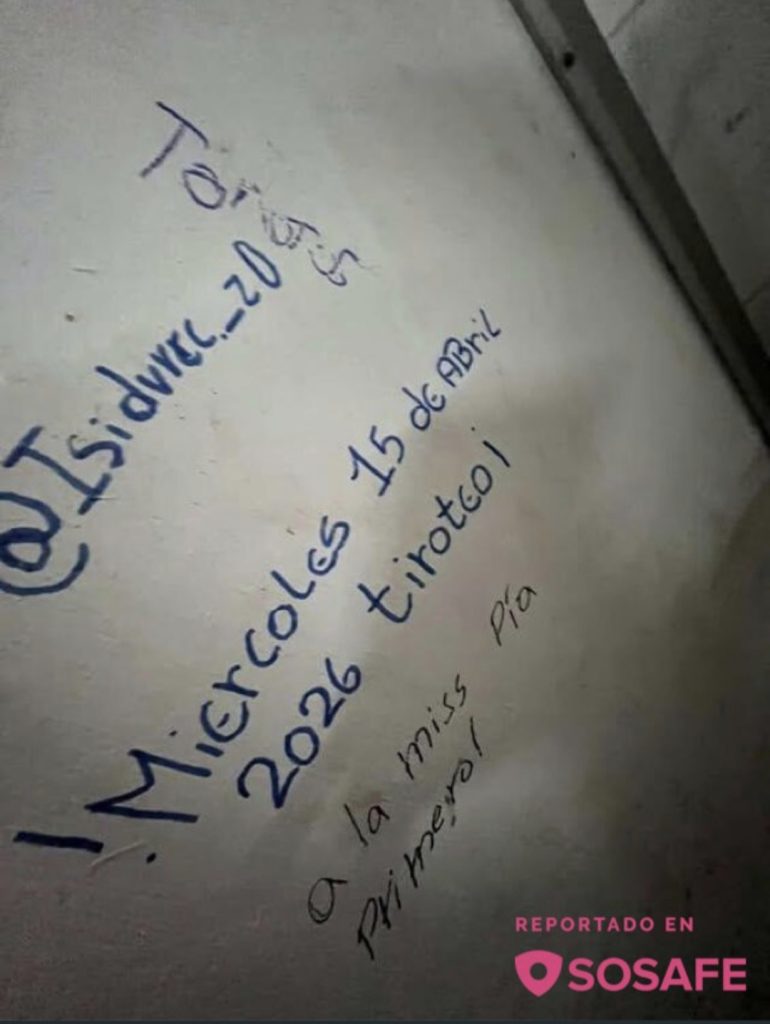 @Isidurec._20
! Miercoles 15 de ABril
2026 tiroteo!
a la miss Pía
Primero!
REPORTADO EN
SOSAFE